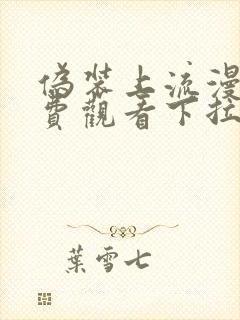 偽裝上流漫
費觀看下拉
葉雪七